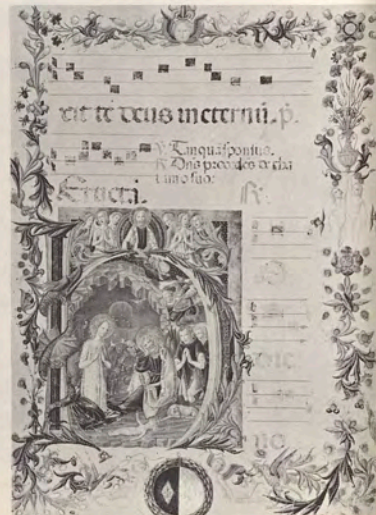 xit te deus in eternū. p̄.
℣. Tanquā sponsus.
℟. Dn̄s procedēs de tha
lamo suo:
℟.
H